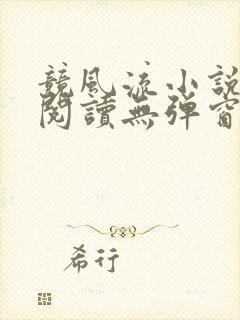 競風流小說
閱讀無彈窗
希行